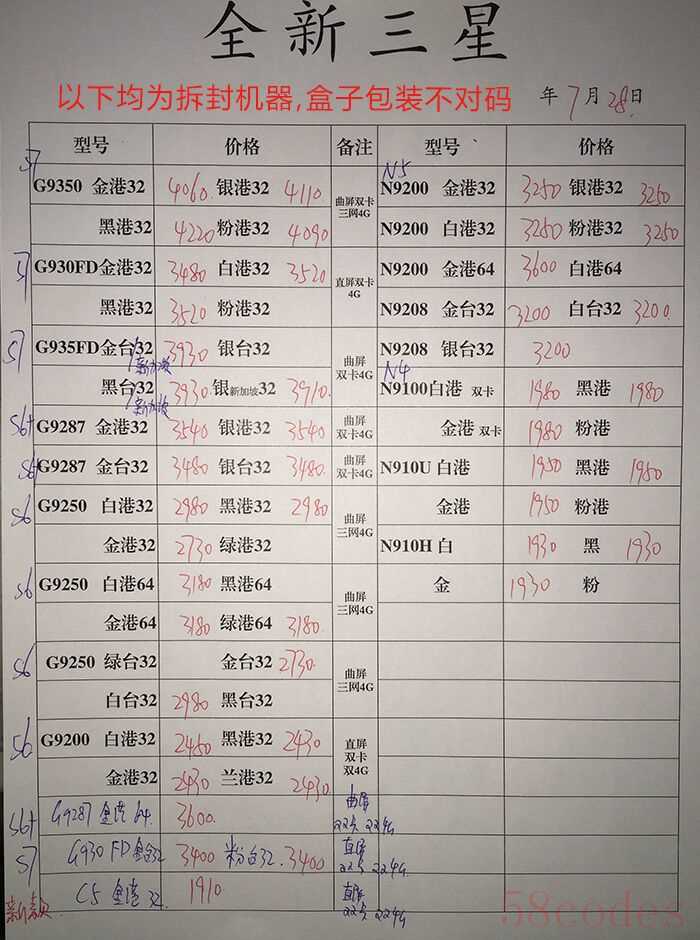 全新三星
以下均为拆封机器,盒子包装不对码 年 7月 28日
型号 价格 备注 型号 价格
S7 G9350 金港32 4060 银港32 4110 曲屏双卡 三网4G N5 N9200 金港32 3250 银港32 3250
黑港32 4220 粉港32 4090 N9200 白港32 3250 粉港32 3250
S7 G930FD金港32 3480 白港32 3520 直屏双卡 4G N9200 金港64 3600 白港64
黑港32 3520 粉港32 N9208 金台32 3200 白台32 3200
S7 G935FD金台32 /新加坡 3930 银台32 曲屏 双卡4G N9208 银台32 3200
黑台32 /新加坡 3930 银新加坡32 3910 N4 N9100白港 双卡 1980 黑港 1980
S6+ G9287 金港32 3540 银港32 3540 曲屏 双卡4G 金港 双卡 1980 粉港
S6+ G9287 金台32 3480 银台32 3480 曲屏 双卡4G N910U 白港 1950 黑港 1950
S6 G9250 白港32 2980 黑港32 2980 曲屏 三网4G 金港 1950 粉港
金港32 2730 绿港32 N910H 白 1930 黑 1930
S6 G9250 白港64 3180 黑港64 曲屏 三网4G 金 1930 粉
金港64 3180 绿港64 3180
S6 G9250 绿台32 金台32 2730 曲屏 三网4G
白台32 2980 黑台32
S6 G9200 白港32 2460 黑港32 2430 直屏 双卡 双4G
金港32 2430 兰港32 2430
S6+ G9287 金港 64 3600 曲屏 22卡 224G
S7 G930 FD 金台32 3400 粉台32 3400 直屏 22卡 224G
新款 C5 金港 32 1910 直屏 22卡 224G
58codes